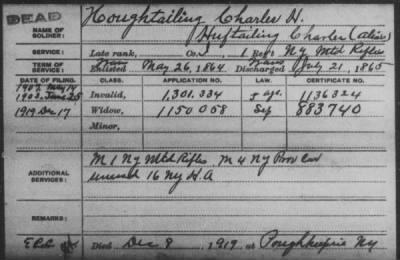 DEAD
NAME OF SOLDIER: Houghtailing Charles H.
Huftailing Charles (alias)
SERVICE: Late rank, Co. 1 Regt Ny Mtd Rifles
TERM OF SERVICE: Enlisted May 26, 1864 Discharged July 21, 1865
DATE OF FILING. CLASS. APPLICATION NO. LAW. CERTIFICATE NO.
1902 May 14
1903 Invalid, 1,301.334 age. 1136324
1919 Dec 17 Widow, 1150058 Sep 883740
Minor,
ADDITIONAL SERVICES: M 1 Ny Mtd Rifles, M 4 Ny Prov Cav
unassd 16 Ny H.A
REMARKS:
Died Dec 8 1919 at Poughkeepsie Ny